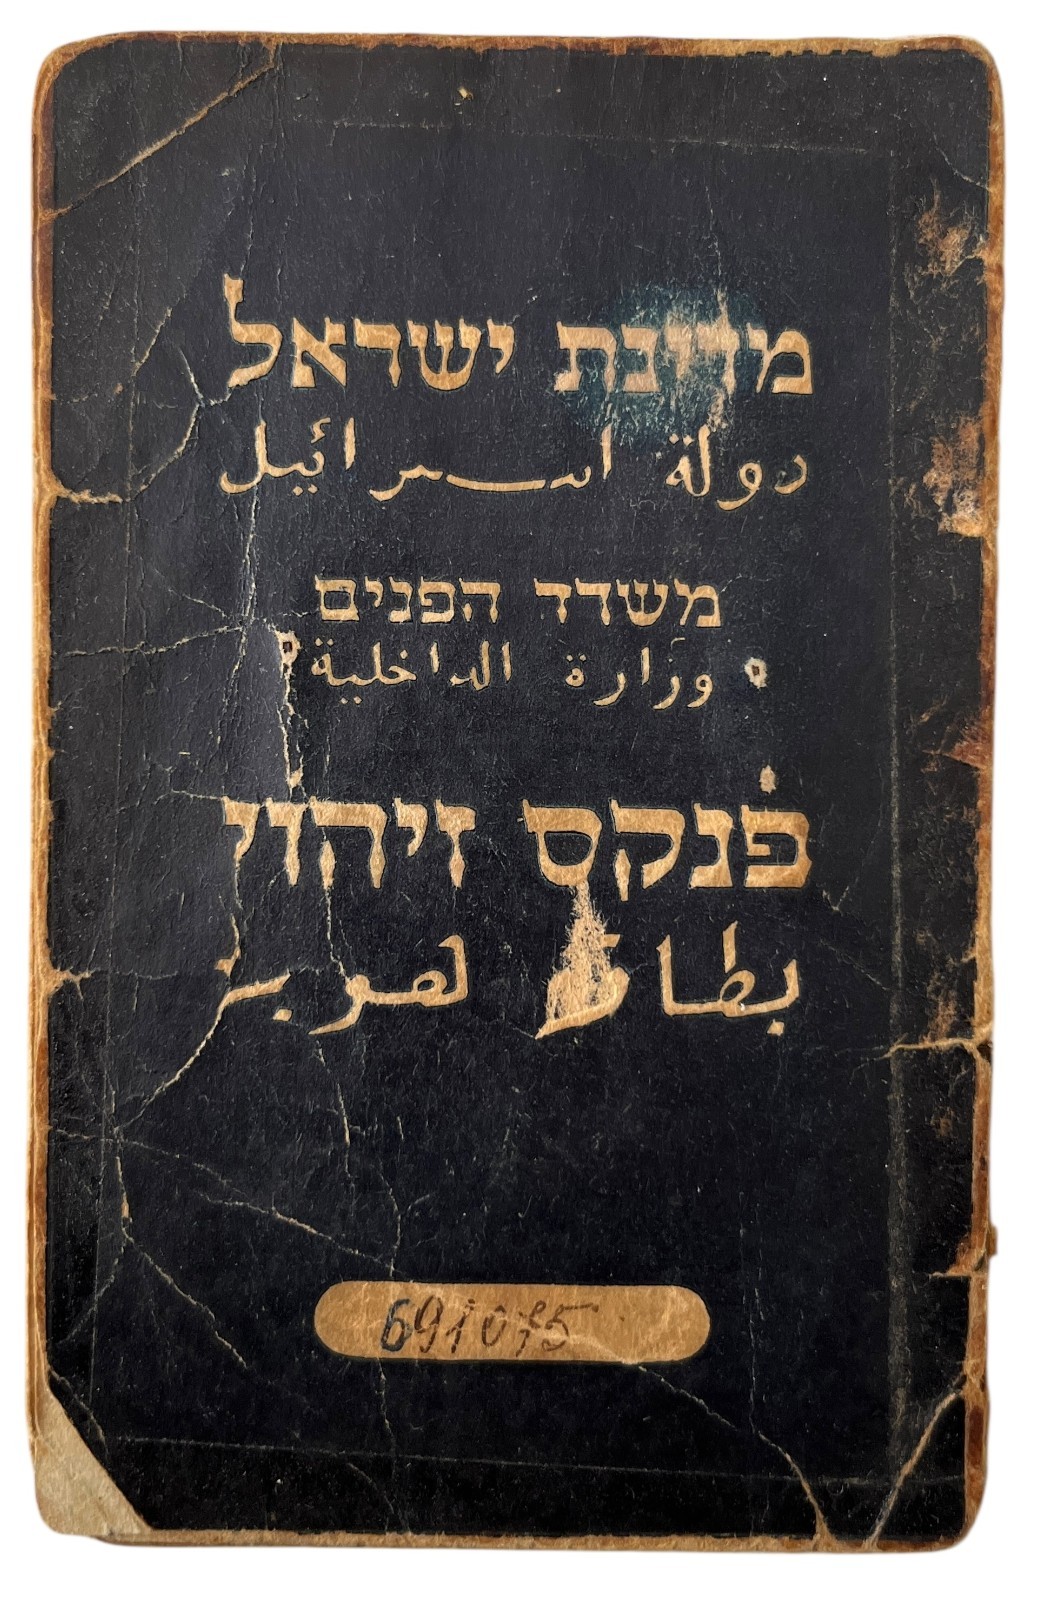 מדינת ישראל
دولة اسرائيل
משרד הפנים
وزارة الداخلية
פנקס זיהוי
بطاقة
691075